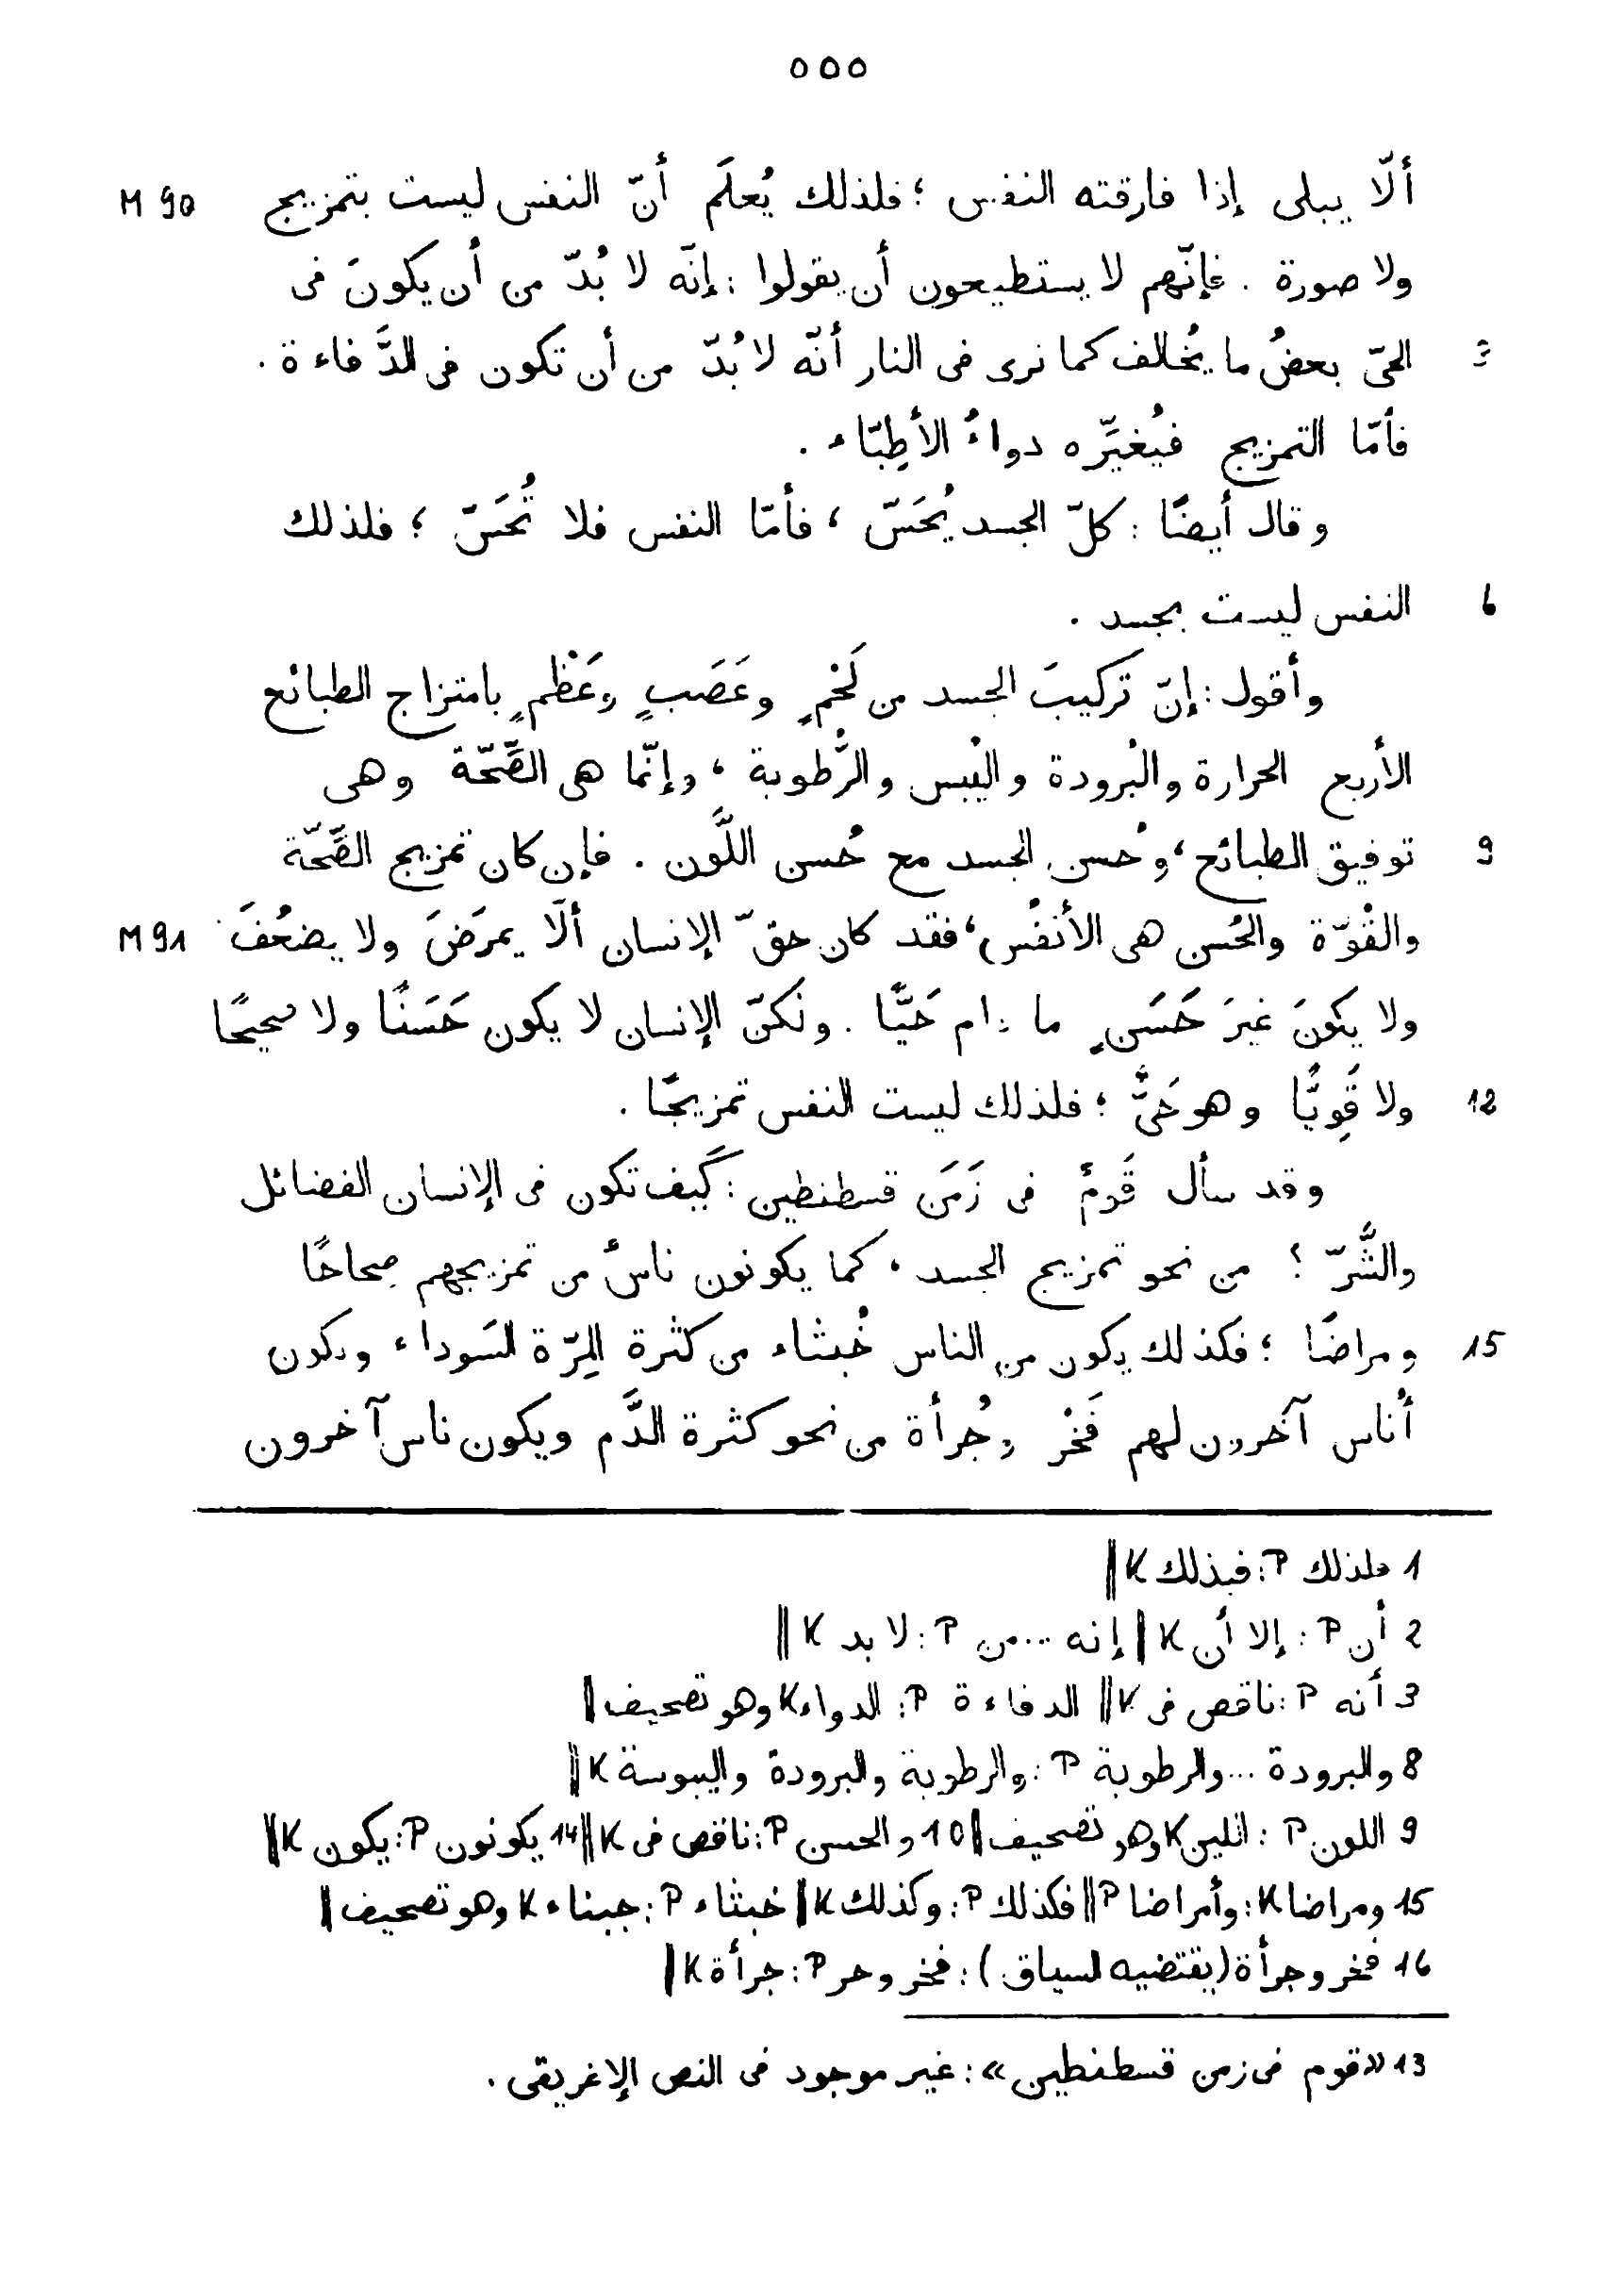 ٥٥٥
ألّا يبلى إذا فارقته النفس ؛ فلذلك يُعلَم أنّ النفس ليست بتمزيج M 90
ولا صورة . فإنّهم لا يستطيعون أن يقولوا : إنّه لا بُدّ من أن يكونَ فى
3 الحىّ بعضُ ما يُخالف كما نرى فى النار أنّه لا بُدّ من أن تكون فى الدَّفاءة .
فأمّا التمزيج فيُغيِّره دواءُ الأطِبّاء .
وقال أيضًا : كلّ الجسد يُحَسّ ، فأمّا النفس فلا تُحَسّ ؛ فلذلك
6 النفس ليست بجسد .
وأقول : إنّ تركيبَ الجسد من لَحْمٍ وعَصَبٍ وعَظْمٍ بامتزاج الطبائع
الأربع الحرارة والبُرودة واليُبس والرُّطوبة ، وإنّما هى الصِّحّة وهى
9 توفيق الطبائع ، وحُسن الجسد مع حُسن اللَّون . فإن كان تمزيج الصِّحّة
والقُوّة والحُسن هى الأنفُس ، فقد كان حقّ الإنسان ألّا يمرَضَ ولا يضعُفَ M 91
ولا يكونَ غيرَ حَسَنٍ ما دام حَيًّا . ولكنّ الإنسان لا يكون حَسَنًا ولا صحيحًا
12 ولا قَوِيًّا وهو حَىٌّ ؛ فلذلك ليست النفس تمزيجًا .
وقد سأل قَومٌ فى زَمَن قسطنطين : كَيف تكون فى الإنسان الفضائل
والشَّرّ ؟ من نحو تمزيج الجسد ، كما يكونون ناسٌ من تمزيجهم صِحاحًا
15 ومراضًا ؛ فكذلك يكون من الناس خُبثاء من كثرة المِرّة السَوداء ويكون
أُناس آخرون لهم فَخْر وجُرأة من نحو كثرة الدَّم ويكون ناس آخرون
1 فلذلك P : فبذلك K ||
2 أن P : إلا أن K || إنه ... من P : لا بد K ||
3 أنه P : ناقص فى K || الدفاءة P : الدواء K وهو تصحيف ||
8 والبرودة ... والرطوبة P : والرطوبة والبرودة واليبوسة K ||
9 اللون P : اللين K وهو تصحيف || 10 والحسن P : ناقص فى K || 14 يكونون P : يكون K ||
15 ومراضا K : وأمراضا P || فكذلك P : وكذلك K || خبثاء P : جبناء K وهو تصحيف ||
16 فخر وجرأة (يقتضيه السياق) : فخر وحر P : جرأة K ||
13 «قوم فى زمن قسطنطين» : غير موجود فى النص الإغريقى .